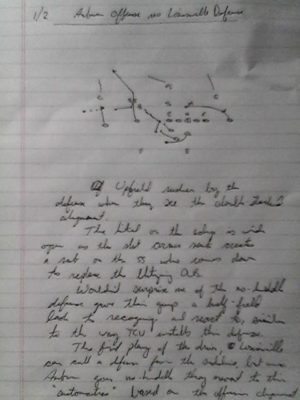 1/2 Auburn Offense vs Louisville Defense
C C
S S
Upfield rushes by the
defense when they see the
alignment.
The on the edge is wide
open as the slot creates
a rub on the SS who comes down
to replace the blitzing OLB.
Wouldn't surprise me if the no-huddle
defense gave them a half-field
look to recognize, and react to similar
to the way TCU installs their defense.
The first play of the drive, Louisville
can call a defense from the sideline, but once
Auburn goes no-huddle they revert to their
"automatics" based on the offensive alignment